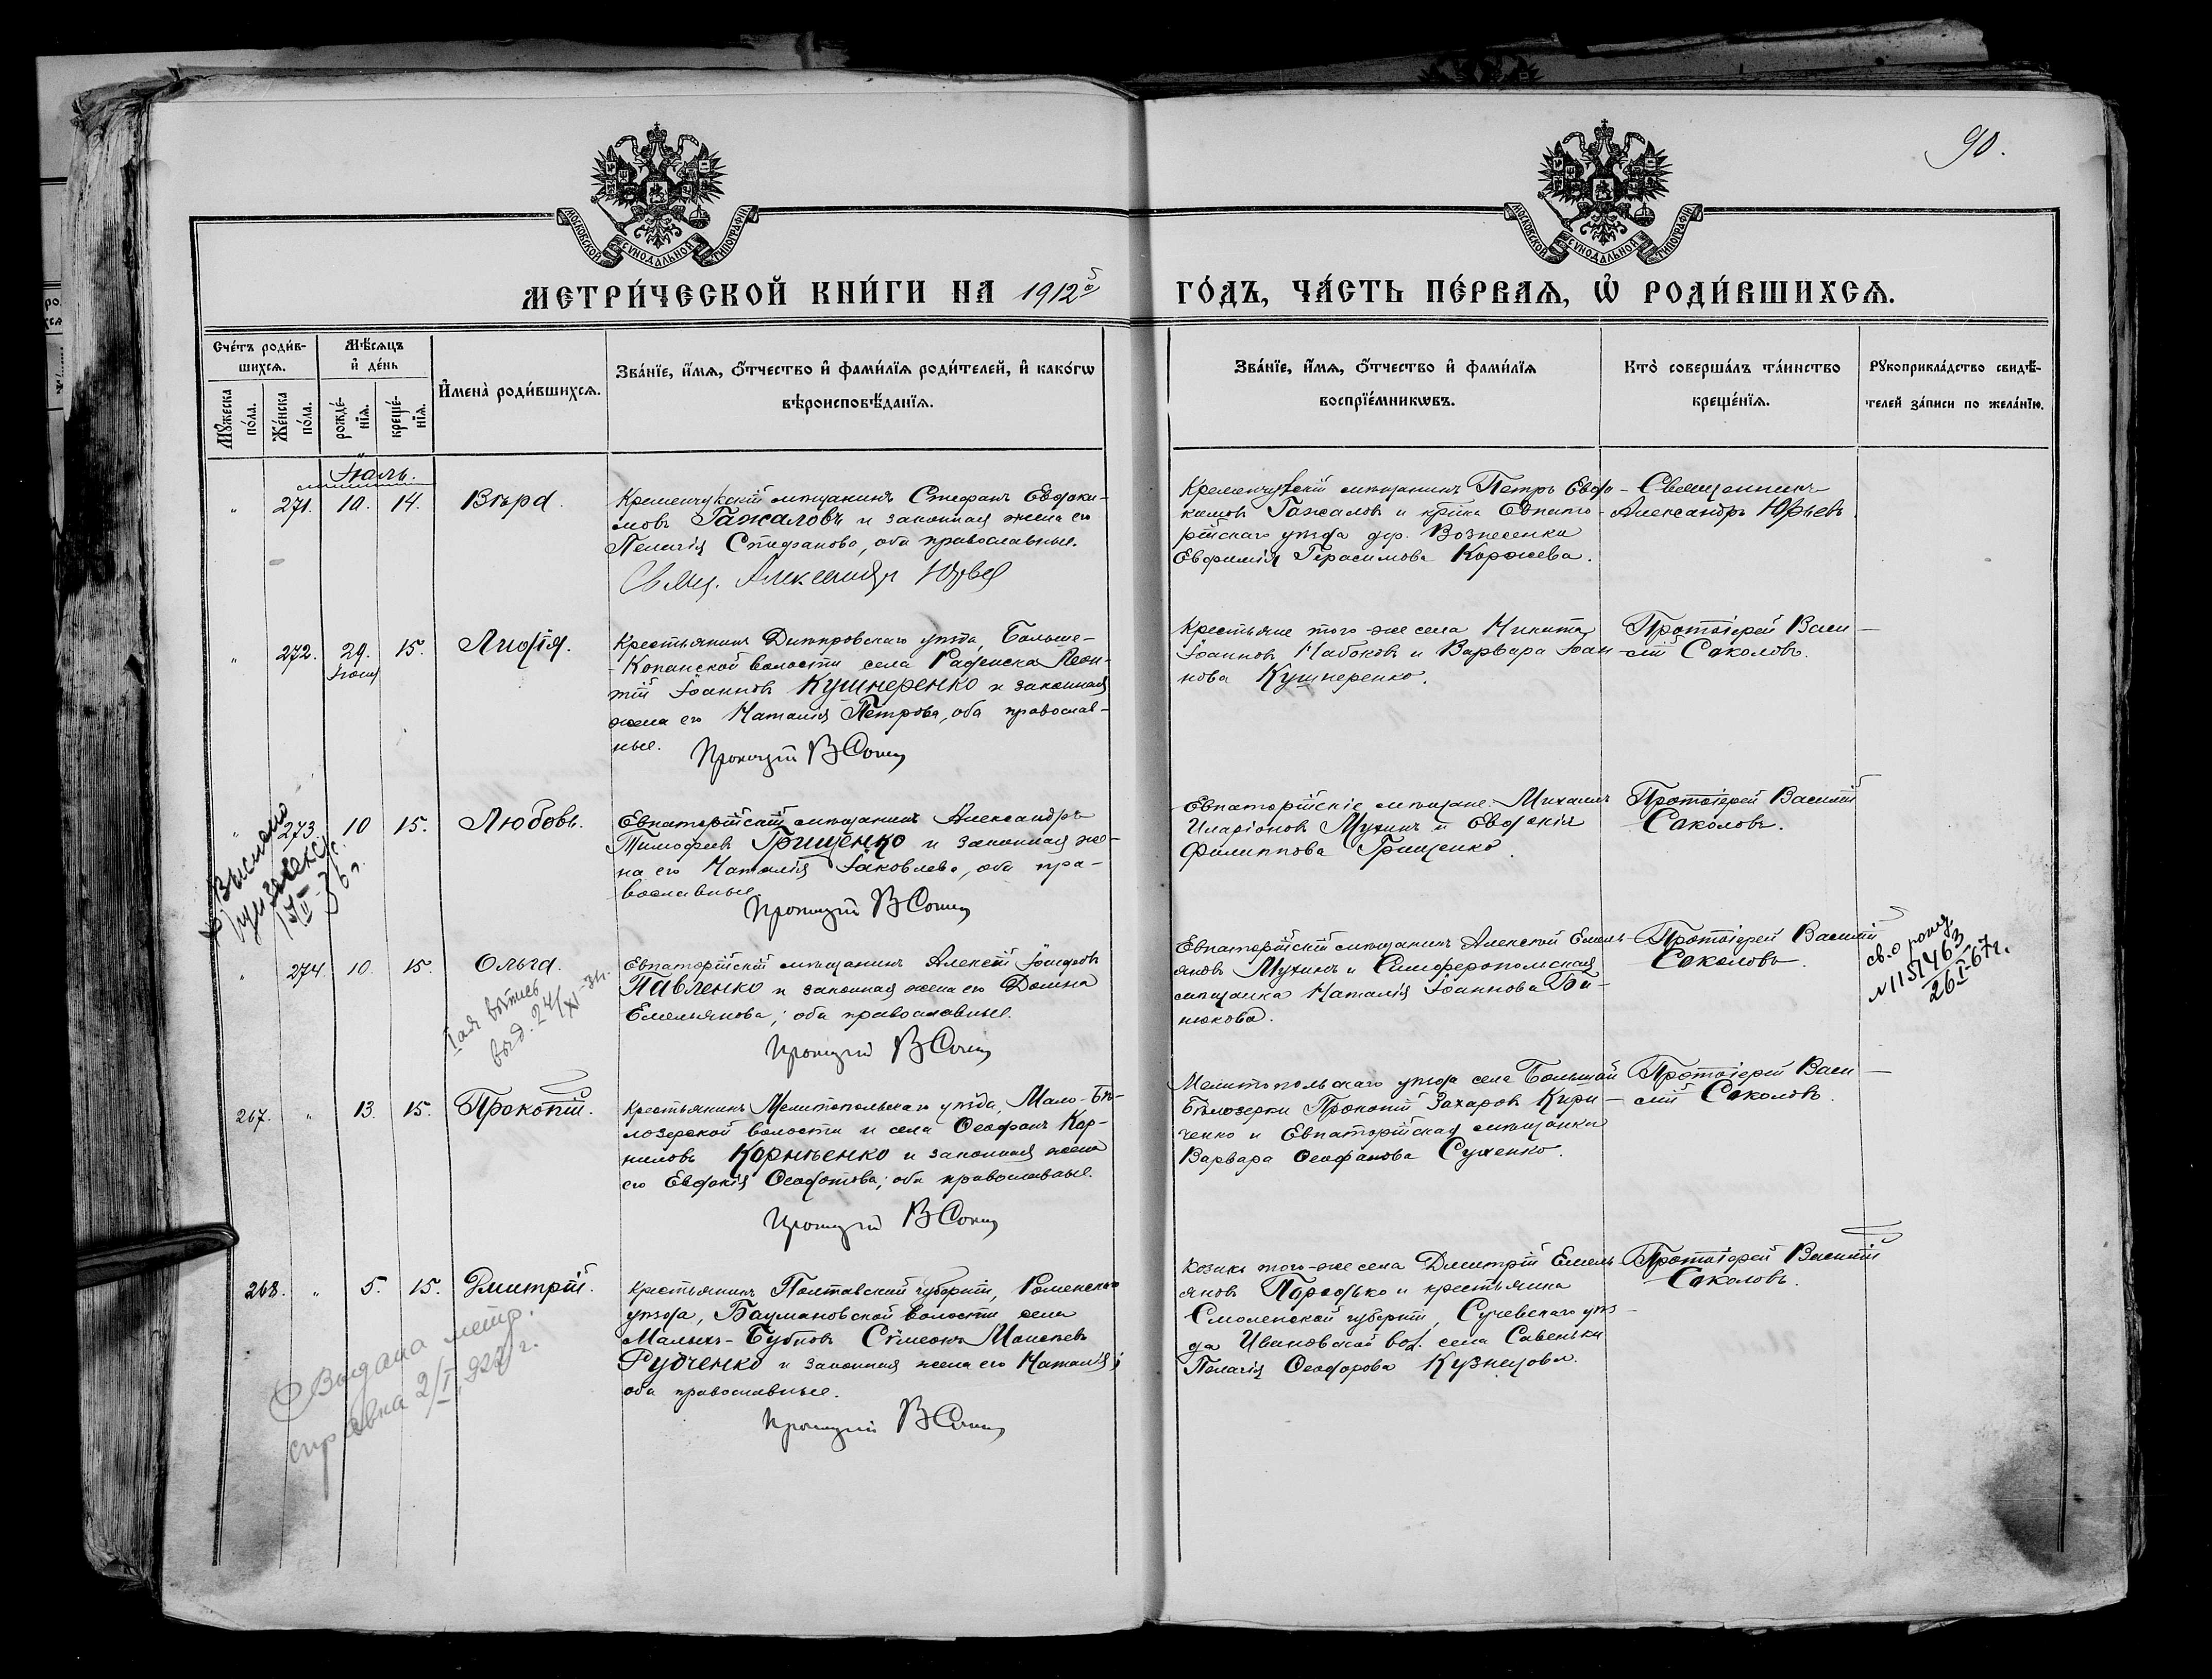 90.
МОСКОВСКОЙ СѴНОДАЛЬНОЙ ТИПОГРАФІИ
МОСКОВСКОЙ СѴНОДАЛЬНОЙ ТИПОГРАФІИ
МЕТРИ́ЧЕСКОЙ КНИ́ГИ НА 1912й ГО́ДЪ, ЧА́СТЬ ПЕ́РВАѦ, Ѡ҆ РОДИ́ВШИХСѦ.
Сче́тъ роди́в-
шихсѧ.
Мѣ́сѧцъ
и҆ де́нь
Мꙋ́жеска по́ла.
Же́нска по́ла.
рожде́-нїѧ.
креще́-нїѧ.
И҆мена̀ роди́вшихсѧ.
Зва́нїе, и҆́мѧ, ѻ҆́тчество и҆ фами́лїѧ роди́телей, и҆ како́гѡ
вѣроисповѣ́данїѧ.
Зва́нїе, и҆́мѧ, ѻ҆́тчество и҆ фами́лїѧ
воспрїе́мникѡвъ.
Кто̀ соверша́лъ та́инство
креще́нїѧ.
Рꙋкоприкла́дство свидѣ́-
телей за́писи по жела́нїю.
Іюль.
" 271. 10. 14. Вѣра.
Кременчукскій мѣщанинъ Стефанъ Евдоки-
мовъ Гажаловъ и законная жена его
Пелагія Стефанова, оба православные.
Свящ. Александръ Юрьев
Кременчугскій мѣщанинъ Петръ Евдо-
кимовъ Гажаловъ и кр-нка Евпато-
рійскаго уѣзда дер. Вознесенки
Евфимія Герасимова Коржева.
Священникъ
Александръ Юрьевъ.
" 272. 29. Іюня 15. Лидія.
Крестьянинъ Днѣпровскаго уѣзда, Больше-
-Копанской волости села Раденска Леон-
тій Іоанновъ Кушнеренко и законная
жена его Наталія Петрова, оба православ-
ные.
Протоіерей В Соко
Крестьяне того-же села Никита
Іоанновъ Набоковъ и Варвара Іоан-
нова Кушнеренко.
Протоіерей Васи-
лій Соколовъ.
" 273. 10 15. Любовь.
Выслано
17/II-36 г.
Евпаторійскій мѣщанинъ Александръ
Тимофеевъ Грищенко и законная же-
на его Наталія Іаковлева, оба пра-
вославные.
Протоіерей В Соко
Евпаторійскіе мѣщане: Михаилъ
Иларіоновъ Мухинъ и Евдокія
Филиппова Грищенко.
Протоіерей Василій
Соколовъ.
" 274. 10. 15. Ольга.
выд. 24/XI-
Евпаторійскій мѣщанинъ Алексѣй
Павленко и законная жена его Домна
Емельянова; оба православные.
Протоіерей В Соко
Евпаторійскій мѣщанинъ Алексѣй Емель-
яновъ Мухинъ и Симферопольская
мѣщанка Наталія Іоаннова Би-
нюкова.
Протоіерей Василій
Соколовъ.
св. о рожд.
N 1151463
26/I-67г.
267. " 13. 15. Прокопій.
Крестьянинъ Мелитопольскаго уѣзда, Мало-Бѣ-
лозерской волости и села Ѳеофанъ Кор-
ниловъ Корніенко и законная жена
его Евдокія Ѳеодотова; оба православные.
Протоіерей В Соко
Мелитопольскаго уѣзда села Большой
Бѣлозерки Прокопій Захаровъ Кири-
ченко и Евпаторійская мѣщанка
Варвара Ѳеофанова Сухенко.
Протоіерей Васи-
лій Соколовъ.
268. " 5. 15. Дмитрій.
Выдана метр.
справка 2/I 927 г.
Крестьянинъ Полтавской губерніи, Роменскаго
уѣзда, Бацмановской волости села
Малыхъ-Бубновъ Сѵмеонъ Моисеевъ
Рубченко и законная жена его Наталія;
оба православные.
Протоіерей В Соко
Козакъ того-же села Дмитрій Емель-
яновъ Породько и крестьянка
Смоленской губерніи, Сычевскаго уѣз-
да Ивановской вол. села Савеньки
Пелагія Ѳеодорова Кузнецова.
Протоіерей Василій
Соколовъ.